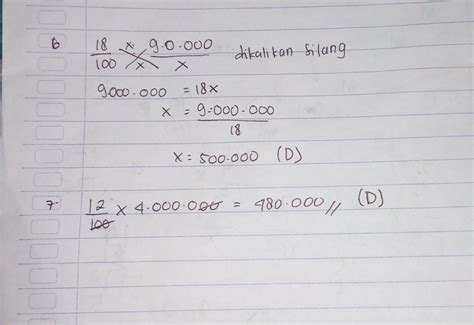 6 18/100 x 90.000/x dikalikan silang
9000.000 = 18x
x = 9.000.000/18
x = 500.000 (D)
7. 12/100 x 4.000.000 = 480.000 // (D)